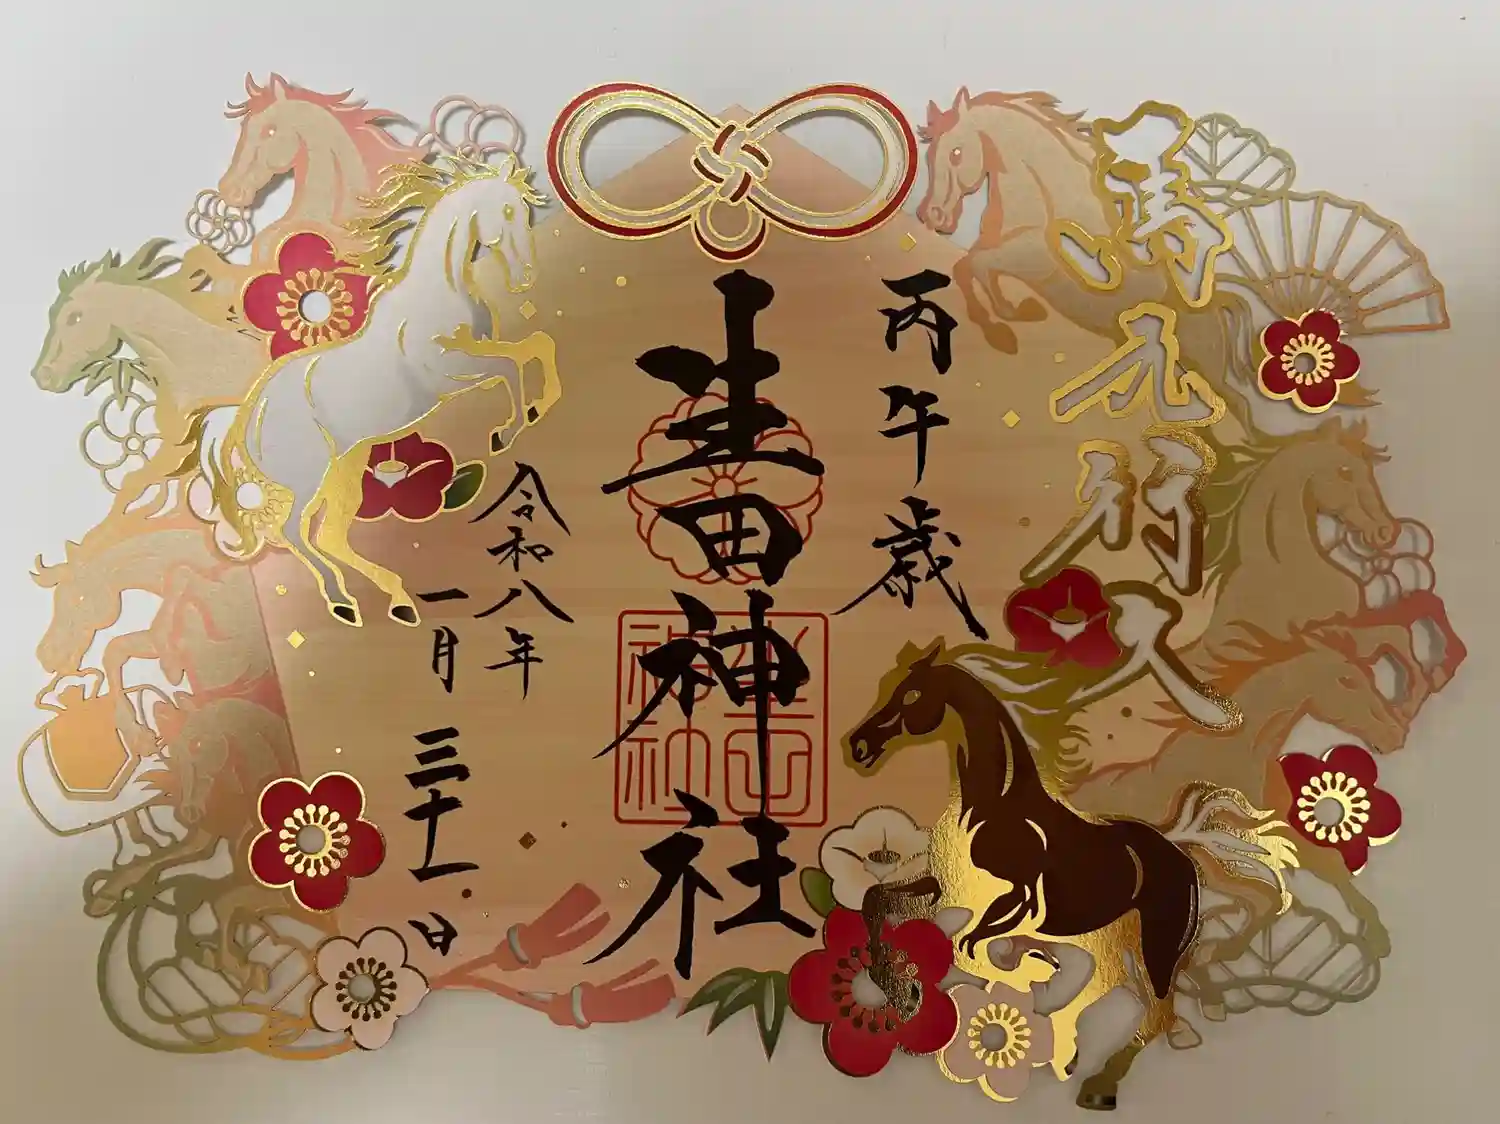 馬九行久
丙午歳
生田神社
生田
神社
令和八年
一月三十一日